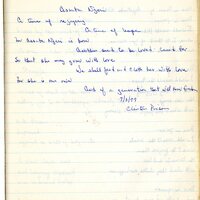 Asante Nzeri
A time of rejoicing
A time of hope
For Asante Nzeri is born
Another seed to be loved cared for
So that she may grow with love
We shall feed and clothe her with love
For she is our own
And of a generation that will
7/2/77